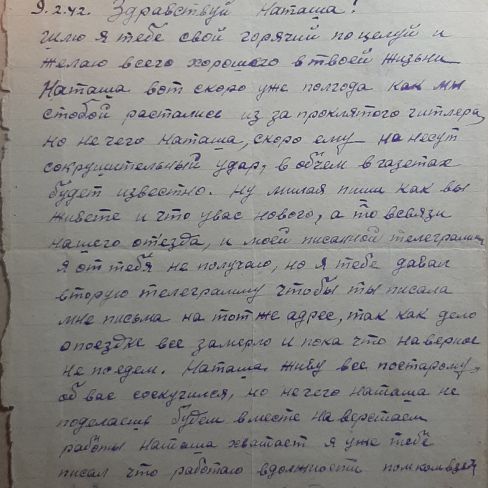 9.2.42. Здравствуй Наташа!
Шлю я тебе свой горячий поцелуй и
желаю всего хорошого в твоей жизни
Наташа вот скоро уже полгода как мы
стобой растались из за проклятого гитлера,
но не чего Наташа, скоро ему нанесут
сокрушительный удар, в общем в газетах
будет известно. Ну милая пиши как вы
живете и что увас нового, а то всвязи
нашего от'езда, и моей писанной телеграммы
я от тебя не получаю, но я тебе давал
вторую телеграмму чтобы ты писала
мне письма на тот же адрес, так как дело
о поездке все замерло и пока что наверное
не поедем. Наташа живу все постарому,
об вас соскучился, но нечего Наташа не
поделаешь будем вместе наверстаем
работы Наташа хватает я уже тебе
писал что работаю вдолжности помкомвзв